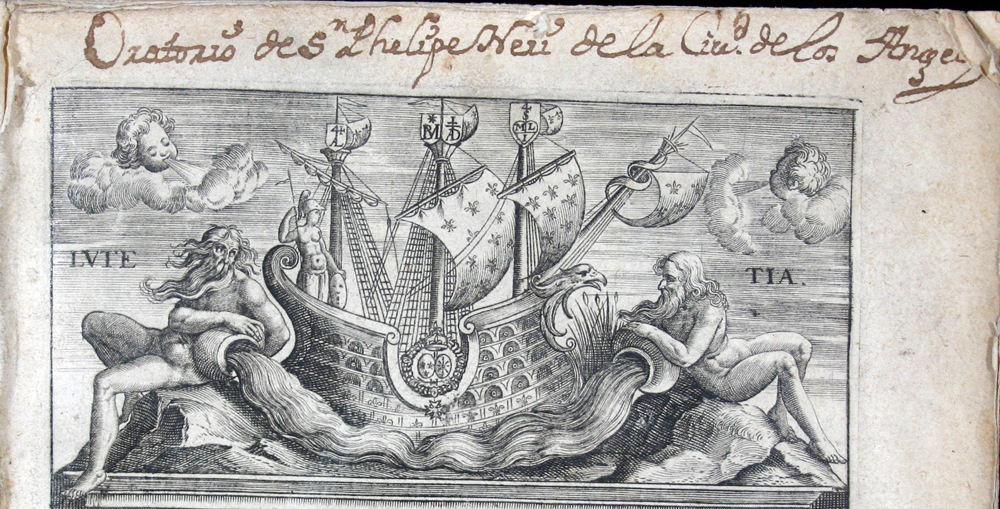 Oratorio de Sn Phelipe Neri de la Ciud. de los Angeles
LVTE TIA.